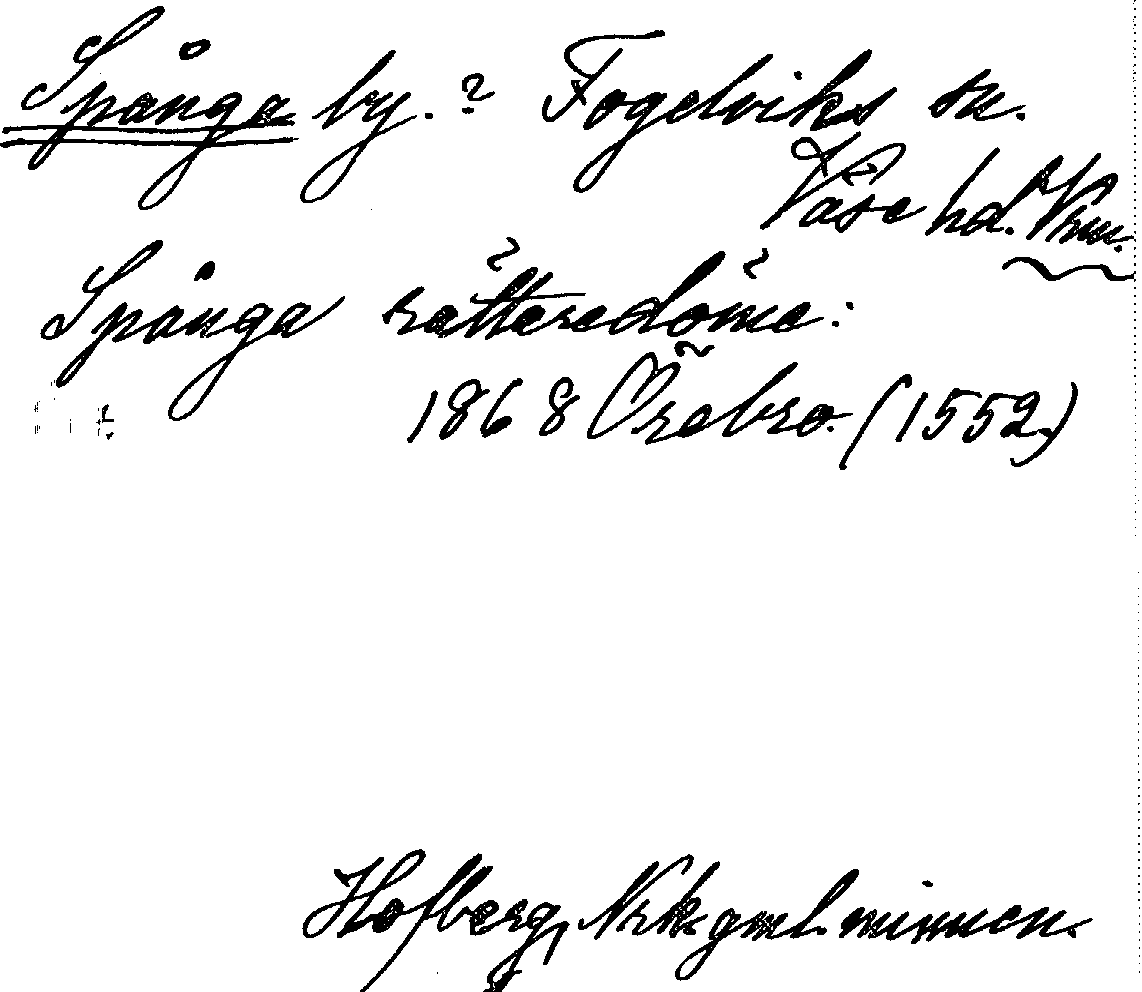 Spånga by.? Fogelviks sn.
Väse hd. Vrm.
Spånga rätteredöme:
1868 Örebro. (1552.)
Hofberg, Nrk. gml. minnen.